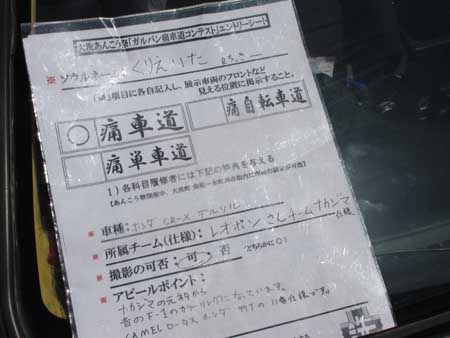 大洗あんこう祭「ガルパン痛車道コンテスト」エントリーシート
※ソウルネーム:くりえいた
(※)項目に各自記入し、展示車両のフロントなど
見える位置に掲示すること。
○ 痛車道 痛自転車道
痛単車道
1)各科目履修者には下記の特典を与える
※車種:ホンダ CR-X デルソル
※所属チーム(仕様):レオポンさんチームナカジマ仕様
※撮影の可否: 可 否 どちらかに○)
※アピールポイント:
ナカジマの元ネタから
昔のF-1のカラーリングになっています。
CAMELロータス ホンダ 99Tの